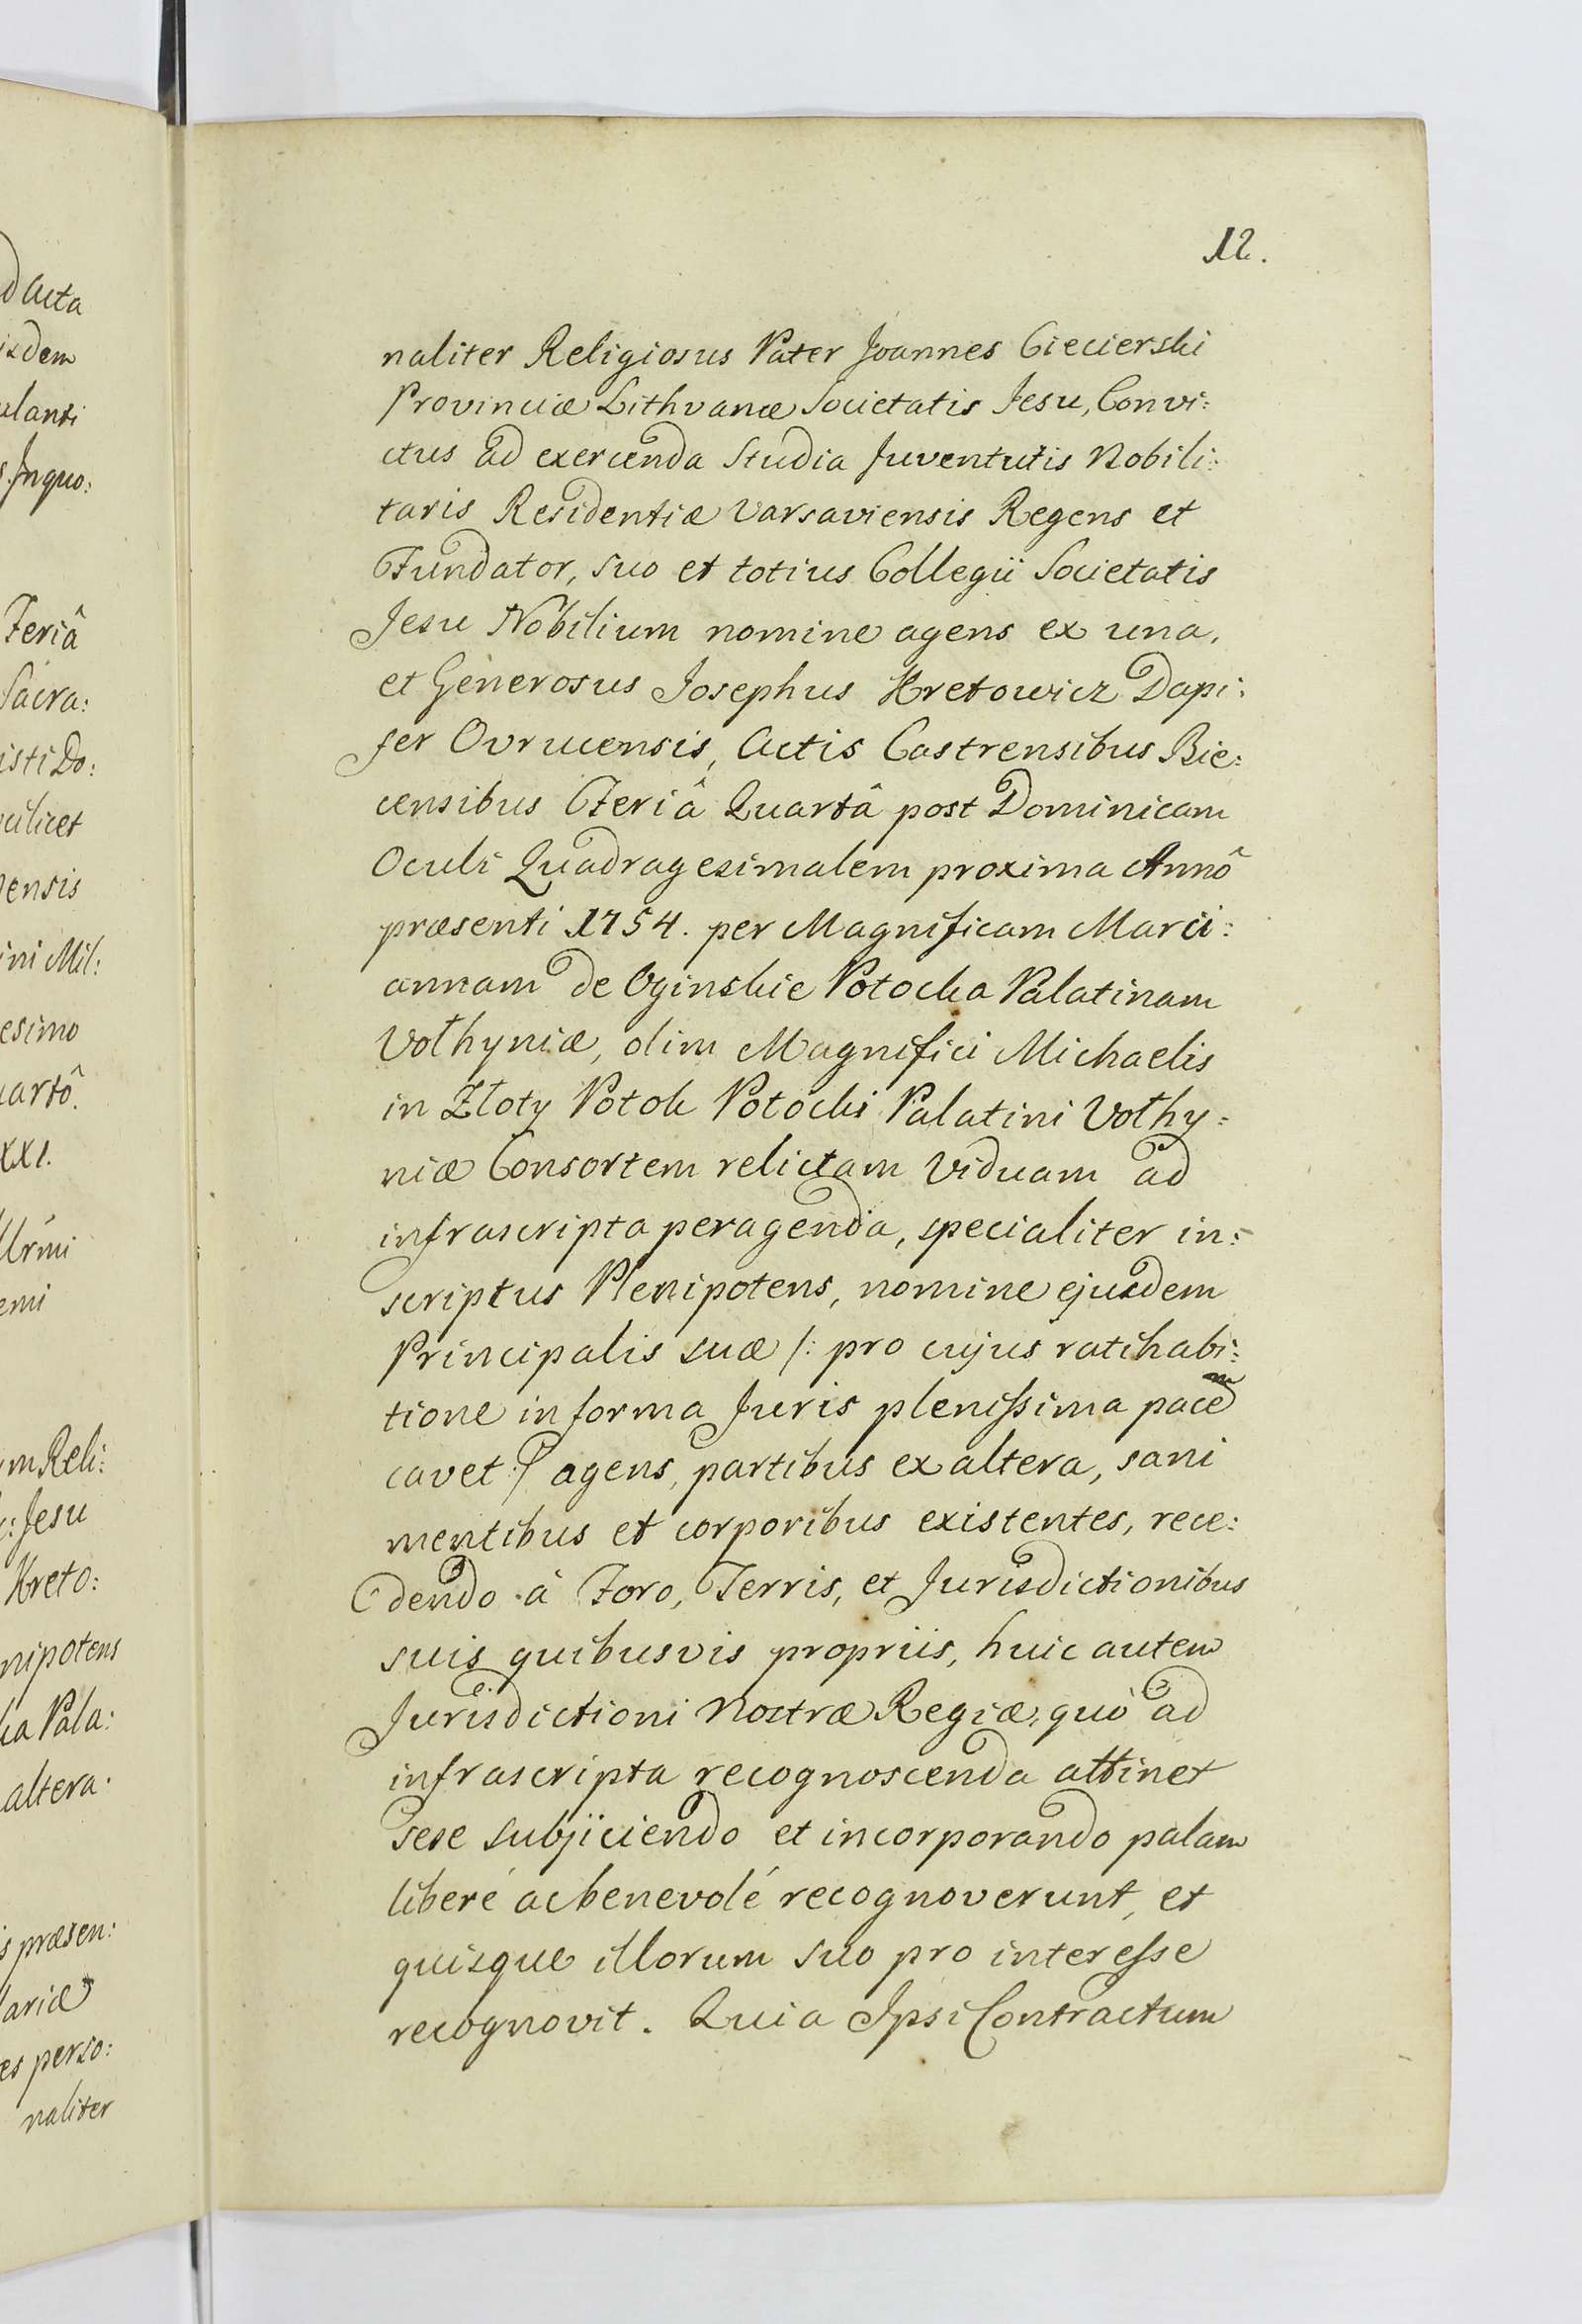 d Acta
isdem
ulanti
s. Inquo:
Feriâ
Sacra:
isti Do:
cilicet
nensis
ini Mil:
esimo
uartô.
XXI.
Urmi
emi
um Reli:
c: Jesu
Kreto:
nipotens
ka Pala:
altera.
s præsen:
lariæ
es perso:
naliter
12.
naliter Religiosus Pater Joannes Ciecierski
Provinciæ Lithvanæ Societatis Jesu, Convi:
ctus ad exercenda Studia Juventutis Nobili:
taris Residentiæ Varsaviensis Regens et
Fundator, suo et totius Collegii Societatis
Jesu Nobilium nomine agens ex una,
et Generosus Josephus Kretowicz Dapi:
fer Ovrucensis, Actis Castrensibus Bie:
censibus Feriâ Quartâ post Dominicam
Oculi Quadragesimalem proxima Annô
præsenti 1754. per Magnificam Marci:
annam de Oginskie Potocka Palatinam
Volhyniæ, olim Magnifici Michaelis
in Złoty Potok Potocki Palatini Volhy:
niæ Consortem relictam Viduam ad
infrascripta peragenda, specialiter in:
scriptus Plenipotens, nomine ejusdem
Principalis suæ /: pro cujus ratihabi:
tione in forma Juris plenissima pacem
cavet :/ agens, partibus ex altera, sani
mentibus et corporibus existentes, rece:
dendo à Foro, Terris, et Jurisdictionibus
suis quibusvis propriis, huic autem
Jurisdictioni Nostræ Regiæ, quò ad
infrascripta recognoscenda attinet
sese subjiciendo et incorporando palam
liberé ac benevolé recognoverunt, et
quisque illorum suo pro interesse
recognovit. Quia Ipsi Contractum